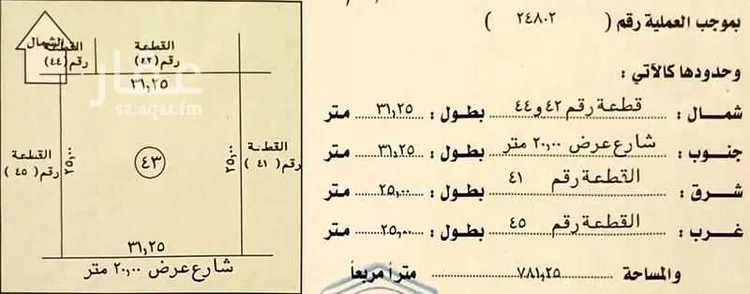 بموجب العملية رقم ( ٢٤٨٠٢ )
وحدودها كالآتي :
شمال : قطعة رقم ٤٢ و ٤٤ بطول : ٣١,٢٥ متر
جنوب : شارع عرض ٢٠,٠٠ متر بطول : ٣١,٢٥ متر
شرق : القطعة رقم ٤١ بطول : ٢٥,٠٠ متر
غرب : القطعة رقم ٤٥ بطول : ٢٥,٠٠ متر
والمساحة ٧٨١,٢٥ متراً مربعاً
الشمال
القطعة
رقم (٤٤)
القطعة
رقم (٤٢)
٣١,٢٥
عقار
sa.aqar.fm
القطعة
رقم ( ٤١ )
٢٥,٠٠
٤٣
٢٥,٠٠
القطعة
رقم ( ٤٥ )
٣١,٢٥
شارع عرض ٢٠,٠٠ متر